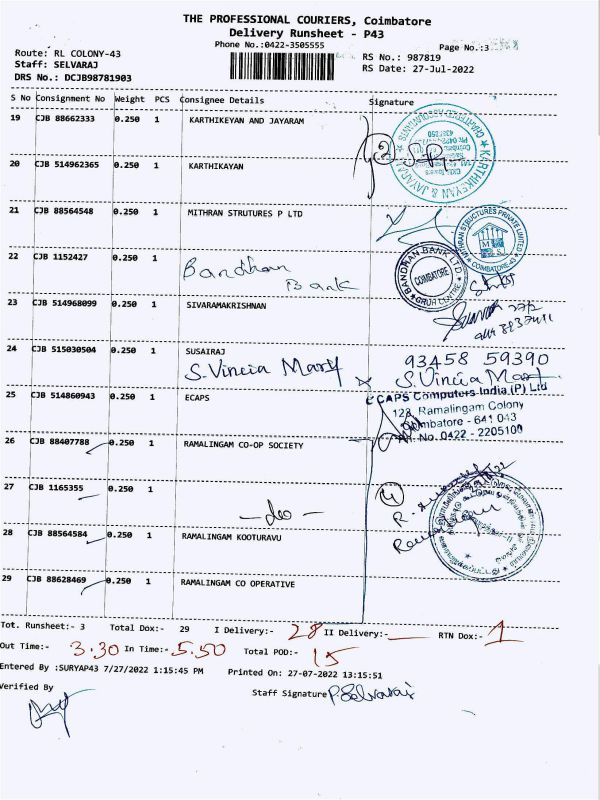 THE PROFESSIONAL COURIERS, Coimbatore
Delivery Runsheet - P43
Phone No.:0422-3505555
Page No.:3
Route: RL COLONY-43
Staff: SELVARAJ
DRS No.: DCJB98781903
RS No.: 987819
RS Date: 27-Jul-2022
S No Consignment No Weight PCS Consignee Details Signature
19 CJB 88662333 0.250 1 KARTHIKEYAN AND JAYARAM
2
KARTHIKEYAN & JAYARAM
CHARTERED ACCOUNTANTS
20 CJB 514962365 0.250 1 KARTHIKAYAN
21 CJB 88564548 0.250 1 MITHRAN STRUTURES P LTD
MITHRAN STRUCTURES PRIVATE LIMITED
COIMBATORE-43
22 CJB 1152427 0.250 1 Bandhan Bank
BANDHAN BANK LTD
COIMBATORE
23 CJB 514968099 0.250 1 SIVARAMAKRISHNAN
24 CJB 515030504 0.250 1 SUSAIRAJ
93458 59390
S. Vincia Mary x S. Vincia Mary
25 CJB 514860943 0.250 1 ECAPS
ECAPS Computers India (P) Ltd
123, Ramalingam Colony
Coimbatore - 641 043
Ph. No. 0422 - 2205100
26 CJB 88407788 0.250 1 RAMALINGAM CO-OP SOCIETY
27 CJB 1165355 0.250 1 - do -
4
28 CJB 88564584 0.250 1 RAMALINGAM KOOTURAVU
29 CJB 88628469 0.250 1 RAMALINGAM CO OPERATIVE
Tot. Runsheet:- 3 Total Dox:- 29 I Delivery:- 28 II Delivery:- RTN Dox:- 1
Out Time:- 3.30 In Time:- 5.50 Total POD:- 15
Entered By :SURYAP43 7/27/2022 1:15:45 PM Printed On: 27-07-2022 13:15:51
Verified By
Staff Signature P. Selvaraj